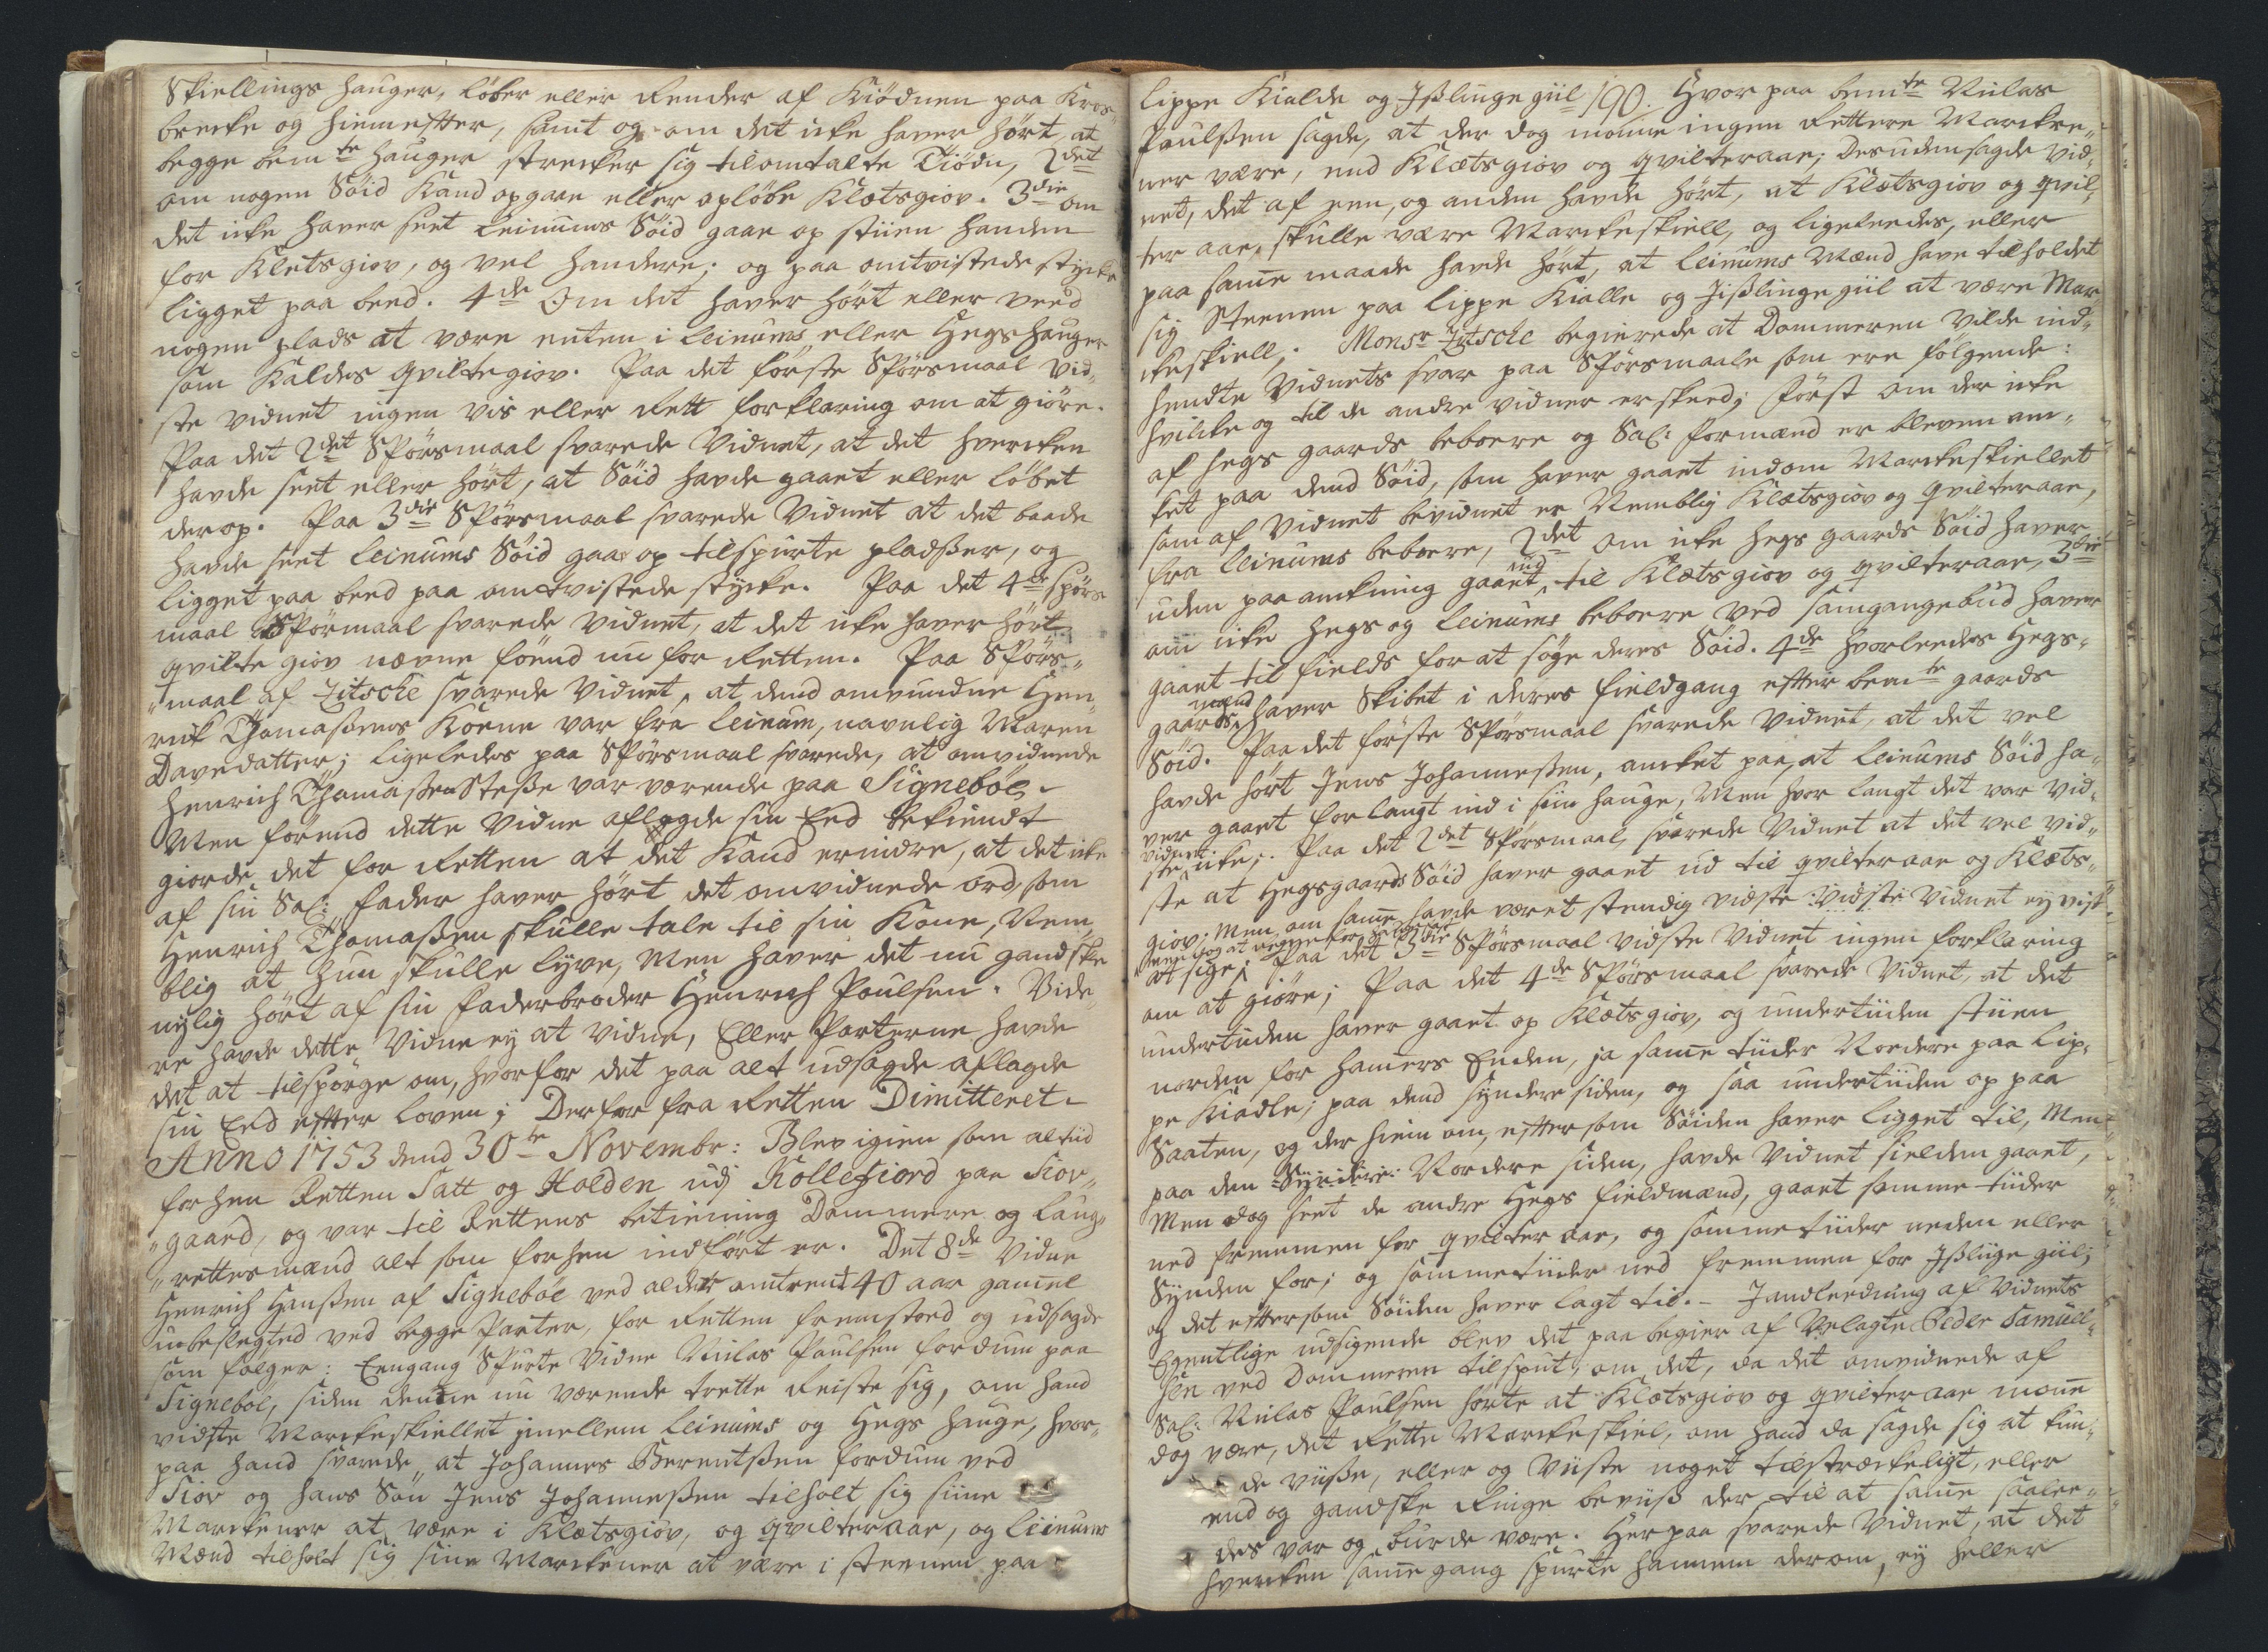 Skiellings hauger, løber eller Render af Kiödnen paa Kros-
brecke og hiemefter, samt og om det icke haver hørt at
begge bemte hauger strecker sig til omtalte Tiödn, 2det
om nogen Söid Kand opgaae eller opløbe Kletsgiov. 3die om
det icke haver seet Leinums Söid gaae op stiien handen
for Kletsgiov, og vel handere; og paa omtvistede stycke
ligget paa beed. 4de Om det haver hørt eller veed
nogen plads at være enten i Leinums eller Hegs hauger
som Kaldes qviltegiov. Paa det første Spørsmaal vid,,
ste vidnet ingen vis eller Rett forklaring om at giøre.
Paa det 2det Spørsmaal svarede Vidnet, at det hvercken
havde seet eller hørt, at Söid havde gaaet eller løbet
derop. Paa 3die Spørsmaal svarede Vidnet at det baade
havde seet Leinums Söid gaae op tilspurte pladser, og
ligget paa beed paa omtvistede stycke. Paa det 4de spørs
maal Spörmaal svarede vidnet, at det icke haver hørt
qvilte giov nævne förend nu for Retten. Paa Spørs,,
,,maal af Zitsche svarede Vidnet, at dend omvundne Hen,,
rick Thomasens Koene var fra Leinum, navnlig Maren
Davedatter; ligeledes paa Spørsmaal svarede, at omvidnede
Henrich Thomassen Stesse var værende paa Signebøe,
Men förend dette Vidne aflagde sin Eed bekiendt
giorde det for Retten at det Kand erindre, at det icke
af sin Sal: Fader haver hørt det omvidnede ord, som
Henrich Thomasen skulle tale til sin Kone, Nem,,
blig at hun skulle lyve, Men haver det nu gandske
nylig hørt af sin Faderbroder Henrich Poulsen. Vide,,
re havde dette Vidne ey at vidne, Eller Parterne havde
det at tilspørge om, hvorfor det paa alt udsagde aflagde
sin Eed efter loven; Derfor fra Retten Dimitteret.
Anno 1753 dend 30te Novembr: Blev igien som altiid
forhen Retten Satt og Holden udj Kollefiord paa Siov,,
,,gaard, og var til Rettens betiening Dommere og Laug,,
,,rettesmænd alt som forhen indført er. Det 8de Vidne
Henrich Hansen af Signeböe ved alder omtrent 40 aar gamel
ubeslegted ved begge Parter, for Retten fremstoed og udsagde
som følger: Eengang Spurte Vidne Niclas Poulsen fordum paa
Signebøe, siden denne nu værende trette Reiste sig, om hand
vidste Marckeskiellet imellem Leinums og Hegs Hauge, hvor,,
paa hand svarede, at Johannes Berentsen fordum ved
Siov og hans Søn Jens Johannesen tilholt sig siine
Marckener at være i Kletsgiov, og qvilteraae, og Leinums
Mænd tilholt sig sine Marckener at være i steenen paa
Lippe Kialde og Jßlingegiil 190. Hvor paa bemte Niclas
Poulsen sagde, at der dog monne ingen Rettere Marcke,,
ner være, end Kletsgiov og qvilteraae; Desuden sagde vid,,
net, det af een, og anden havde hørt, at Kletsgiov og qvil,,
ter aae, skulle være Marckeskiell, og ligeleedes, eller
paa same maade havde hørt, at Leinums Mænd have tilholdet
sig Steenen paa Lippe Kialle og Jißlinge giil at være Mar,,
ckeskiell; Monsr Zitsche begierede at Dommeren Vilde ind,,
hendte Vidnets svar paa Spørsmaale som ere følgende:
hvilcke og til de andre vidner er skeed; Først om der icke
af hegs gaards beboere og Sal: formænd er bleven an,,
ket paa dend Söid, som haver gaaet indom Marckeskiellet
som af Vidnet bevidnet er Nemblig Kletsgiov og qvilteraae,
fra Leinums beboere, 2det om icke hegs gaards Söid haver
uden paaanckning gaaet ud til Kletsgiov og qvilteraae, 3die
om icke Hegs og Leinums beboere ved samgangebud haver
gaaet til fields for at søge deres Söid. 4de hvorleedes Hegs-
gaards mænd haver skibet i deres fieldgang efter bemte gaards
Söid. Paa det første Spørsmaal svarede Vidnet, at det vel
havde hørt Jens Johannesen, ancket paa, at Leinums Söid ha,,
ver gaaet for langt ind i siin hauge, Men hvor langt det var vid,,
ste vidnet icke; Paa det 2det Spørsmaal, svarede Vidnet at det vel vid,,
ste at Hegsgaards Söid haver gaaet ud til qvilteraae og Klets,,
giov; Men om same havde været stendig vidste :Vidste Vidnet ey vist
at sige; Paa det 3die Spørsmaal vidste Vidnet ingen forklaring
om at giøre; Paa det 4de Spørsmaal svarede Vidnet, at det
undertiiden haver gaaet op Kletsgiov, og undertiiden stiien
norden for hamers Enden, ja same tiider Nordere paa Lip,
pe Kiadle; paa dend syndere siden, og saa undertiiden op paa
Saaten, og der hiem om, eftersom Söiden haver ligget til, Men
paa den :Syndere: Nordere siden, havde Vidnet sielden gaaet,
Men dog seet de andre Hegs fieldmænd, gaaet somme tiider
ned fremmen for qvilter aae, og somme tiider neden eller
Synden for; og somme tiider ned fremmen for Jßlinge giil;
og det eftersom Söiden haver lagt til. - J andleedning af Vidnets
Egentlige udsigende blev det paa begier af Velagte Peder Samuel,,
sen ved Dommeren tilsput, om det, da det omvidnede af
Sal: Niclas Poulsen hørte at Kletsgiov og qvilteraae monne
dog være, det Rette Marckeskiel, om hand da sagde sig at kun,,
de viise, eller og Viiste noget tilstreckeligt, eller
end og gandske Ringe beviis der til at same saalee,,
des var og burde være. Herpaa svarede Vidnet, at det
hvercken same gang spurte hannem derom, ey heller